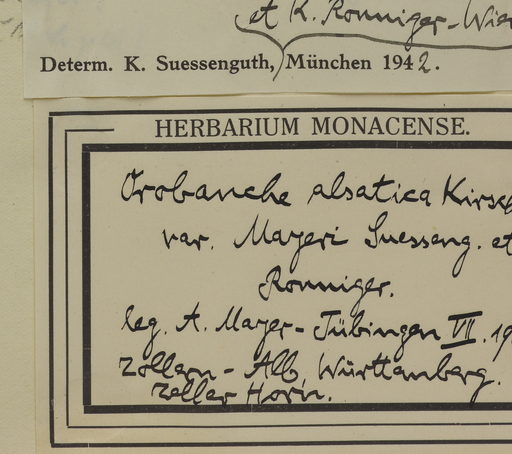 et K. Ronniger-Wien
Determ. K. Suessenguth, München 1942.
HERBARIUM MONACENSE.
Orobanche alsatica Kirsc
var. Mayeri Suesseng. et
Ronniger.
leg. A. Mayer-Tübingen VII. 19
Zollern-Alb, Württemberg.
Zeller Horn.